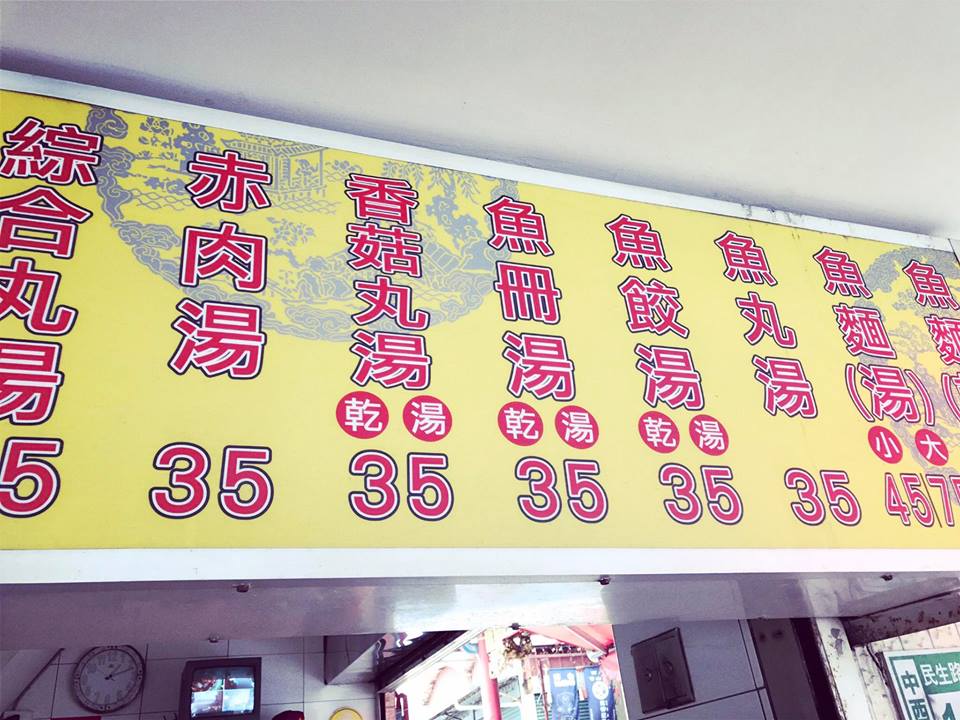 綜合丸湯
5
赤肉湯
35
香菇丸湯
乾 湯
35
魚冊湯
乾 湯
35
魚餃湯
乾 湯
35
魚丸湯
35
魚麵(湯)
小 大
45 7
魚麵(
民生路
中西